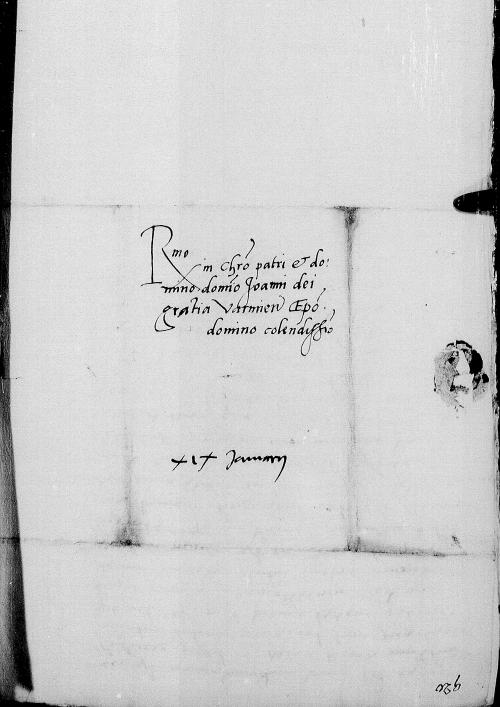 Rmo in Chro patri et do:
mino domio Joanni dei
gratia Varmien Epo.
domino colendissio
xix Januarij